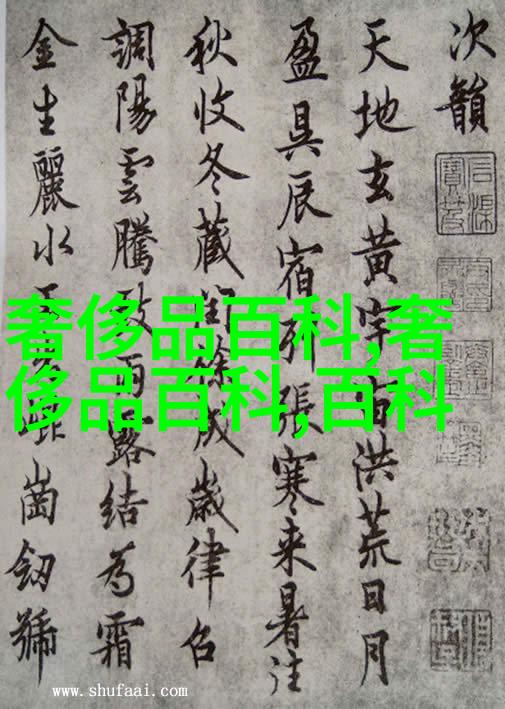 次韻
天地玄黃宇宙洪荒日月
盈昃辰宿列張寒来暑往
秋收冬藏閏餘成歲律召
調陽雲騰致雨露結為霜
金生麗水玉出崑崗劒號
奢侈品百科,奢
侈品百科,百科
www.shufaai.com